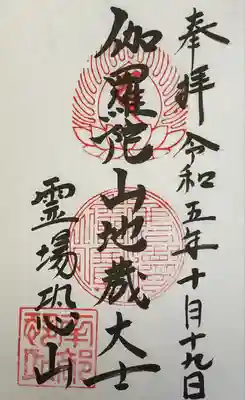 奉拝 令和五年十月十九日
伽羅陀山地蔵大士
霊場恐山